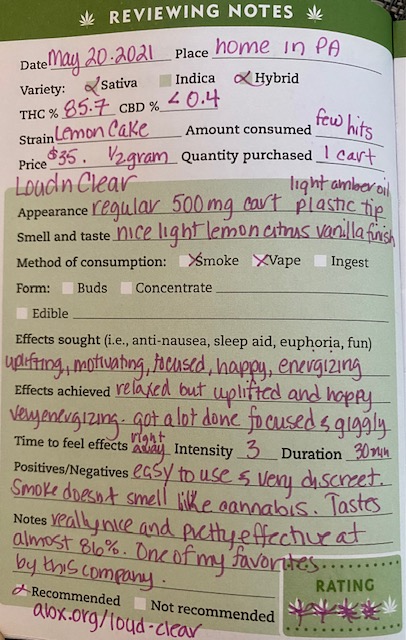 REVIEWING NOTES
Date May 20·2021 Place home in PA
Variety: Sativa Indica Hybrid
THC % 85.7 CBD % <0.4
Strain Lemon Cake Amount consumed few hits
Price $35. ½ gram Quantity purchased 1 cart
Loud n Clear light amber oil
Appearance regular 500 mg cart plastic tip
Smell and taste nice light lemon citrus vanilla finish
Method of consumption: Smoke Vape Ingest
Form: Buds Concentrate
Edible
Effects sought (i.e., anti-nausea, sleep aid, euphoria, fun)
uplifting, motivating, focused, happy, energizing
Effects achieved relaxed but uplifted and happy
very energizing. got a lot done focused & giggly
Time to feel effects right away Intensity 3 Duration 30 min
Positives/Negatives easy to use & very discreet.
Smoke doesn't smell like cannabis. Tastes
Notes really nice and pretty effective at
almost 86%. One of my favorites
by this company.
RATING
Recommended Not recommended
abx.org/loud-clear